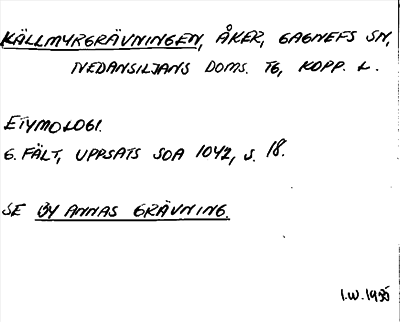 KÄLLMYRGRÄVNINGEN, ÅKER, GAGNEFS SN,
NEDANSILJANS DOMS. TG, KOPP. L.
ETYMOLOGI.
G. FÄLT, UPPSATS SOA 1042, S. 18.
SE BY ANNAS GRÄVNING.
I.W. 1935